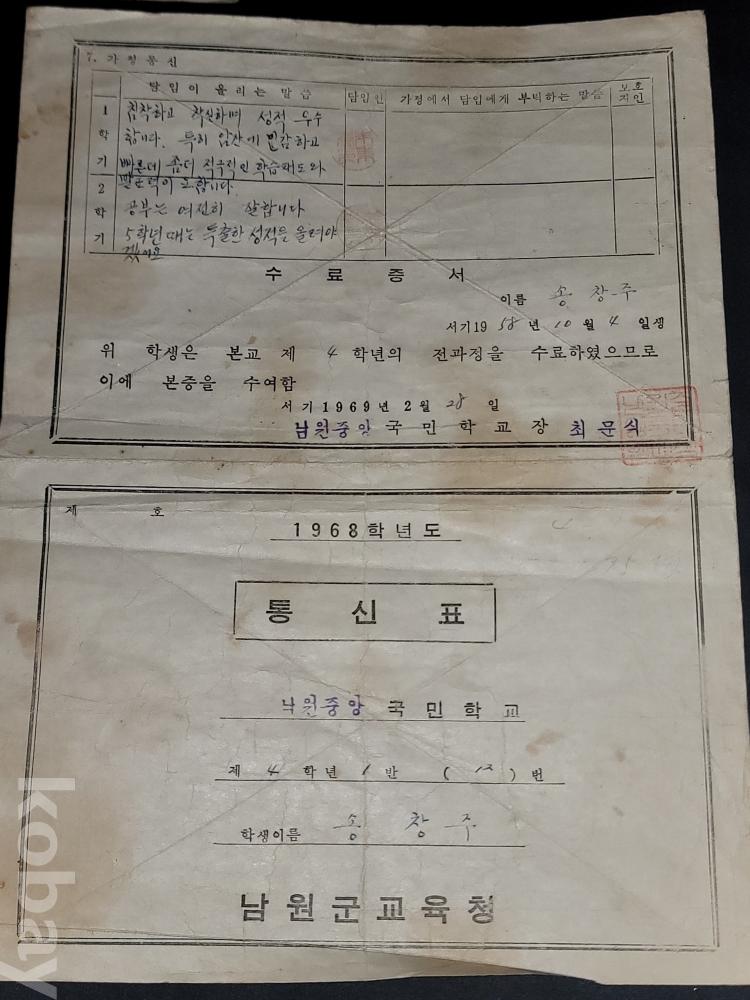 7. 가정통신
담임이 올리는 말씀 담임인 가정에서 담임에게 부탁하는 말씀 보호자인
1학기
침착하고 착실하며 성적 우수
합니다. 특히 암산에 민감하고
빠른데 좀더 적극적인 학습태도와
발표력이 요합니다.
2학기
공부는 여전히 잘합니다
5학년 때는 특출한 성적을 올려야
겠어요
수료증서
이름 송창주
서기1958년 10월 4일생
위 학생은 본교 제 4 학년의 전과정을 수료하였으므로
이에 본증을 수여함
서기1969년 2월 28일
남원중앙국민학교장 최문식
제 호
1968학년도
통신표
남원중앙국민학교
제 4 학년 1 반 (12) 번
학생이름 송창주
남원군교육청
kobay